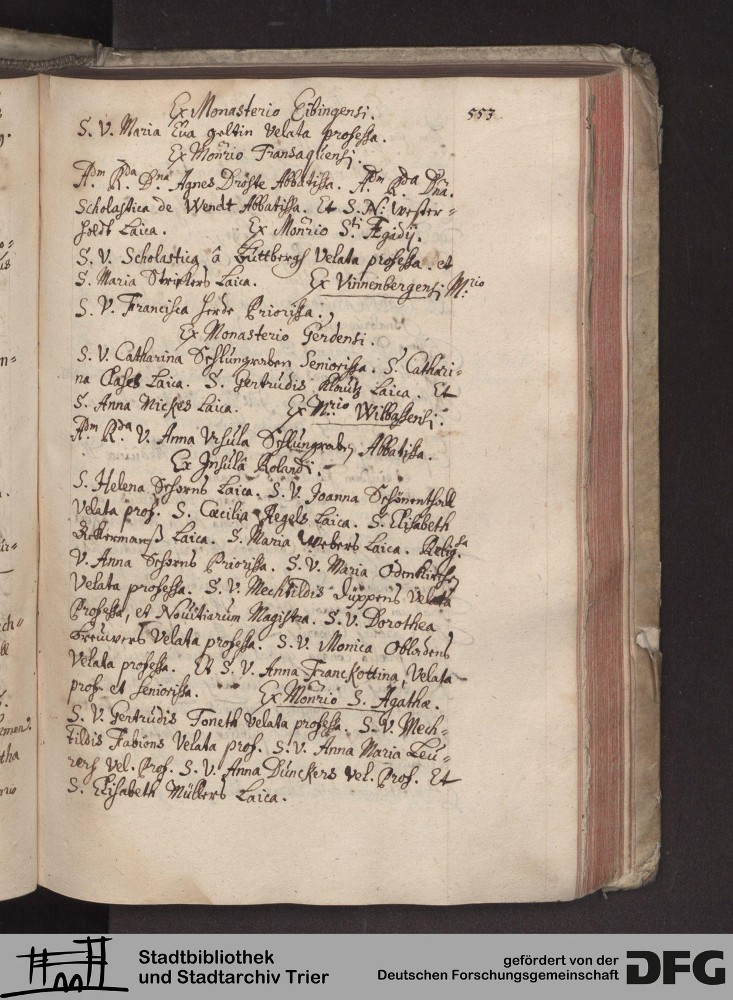 553
Ex Monasterio Eibingensi.
S. V. Maria Eua geltin Velata professa.
Ex Monrio Transaqliensi.
Adm Rda Dna Agnes Dröste Abbatissa. Adm Rda Dna.
Scholastica de Wendt Abbatissa. Et S. N: Wester=
holdt Laica. Ex Monrio Sti Ægidÿ.
S. V. Scholastica â Buttbergh Velata professa. et
S. Maria Strikers Laica. Ex Vinnenbergensi Mrio
S. V. Francisca herde Priorissa.
Ex Monasterio Gerdensi.
S. V. Catharina Schlüngraben Seniorissa. S. Cathari=
na Clases Laica. S. Gertrudis Kloutz Laica. Et
S. Anna Mickes Laica. Ex Mrio Wilbassensi.
Adm Rda V. Anna Vrsula Schlüngraben Abbatissa.
Ex Insulâ Rolandi.
S. Helena Schorns Laica. S. V. Joanna Schönenthall
Velata prof. S. Cæcilia Kegels Laica. S. Elisabeth
Laica. S. Maria Webers Laica. Relig.sa
V. Anna Schorns Priorissa. S. V. Maria Odenkirchen
Velata professa. S. V. Mechtildis Düppens Velata
Professa, et Nouitiarum Magistra. S. V. Dorothea
Breuwers Velata professa. S. V. Monica Obladens
Velata professa. Et S. V. Anna Franckottina, Velata
prof. et Seniorissa. Ex Monrio S. Agathæ.
S. V. Gertrudis Toneth Velata professa. S. V. Mech=
tildis Fabions Velata prof. S. V. Anna Maria Leü=
rers Vel. Prof. S. V. Anna Dünckers Vel. Prof. Et
S. Elisabeth Müllers Laica.
Stadtbibliothek
und Stadtarchiv Trier
gefördert von der
Deutschen Forschungsgemeinschaft
DFG